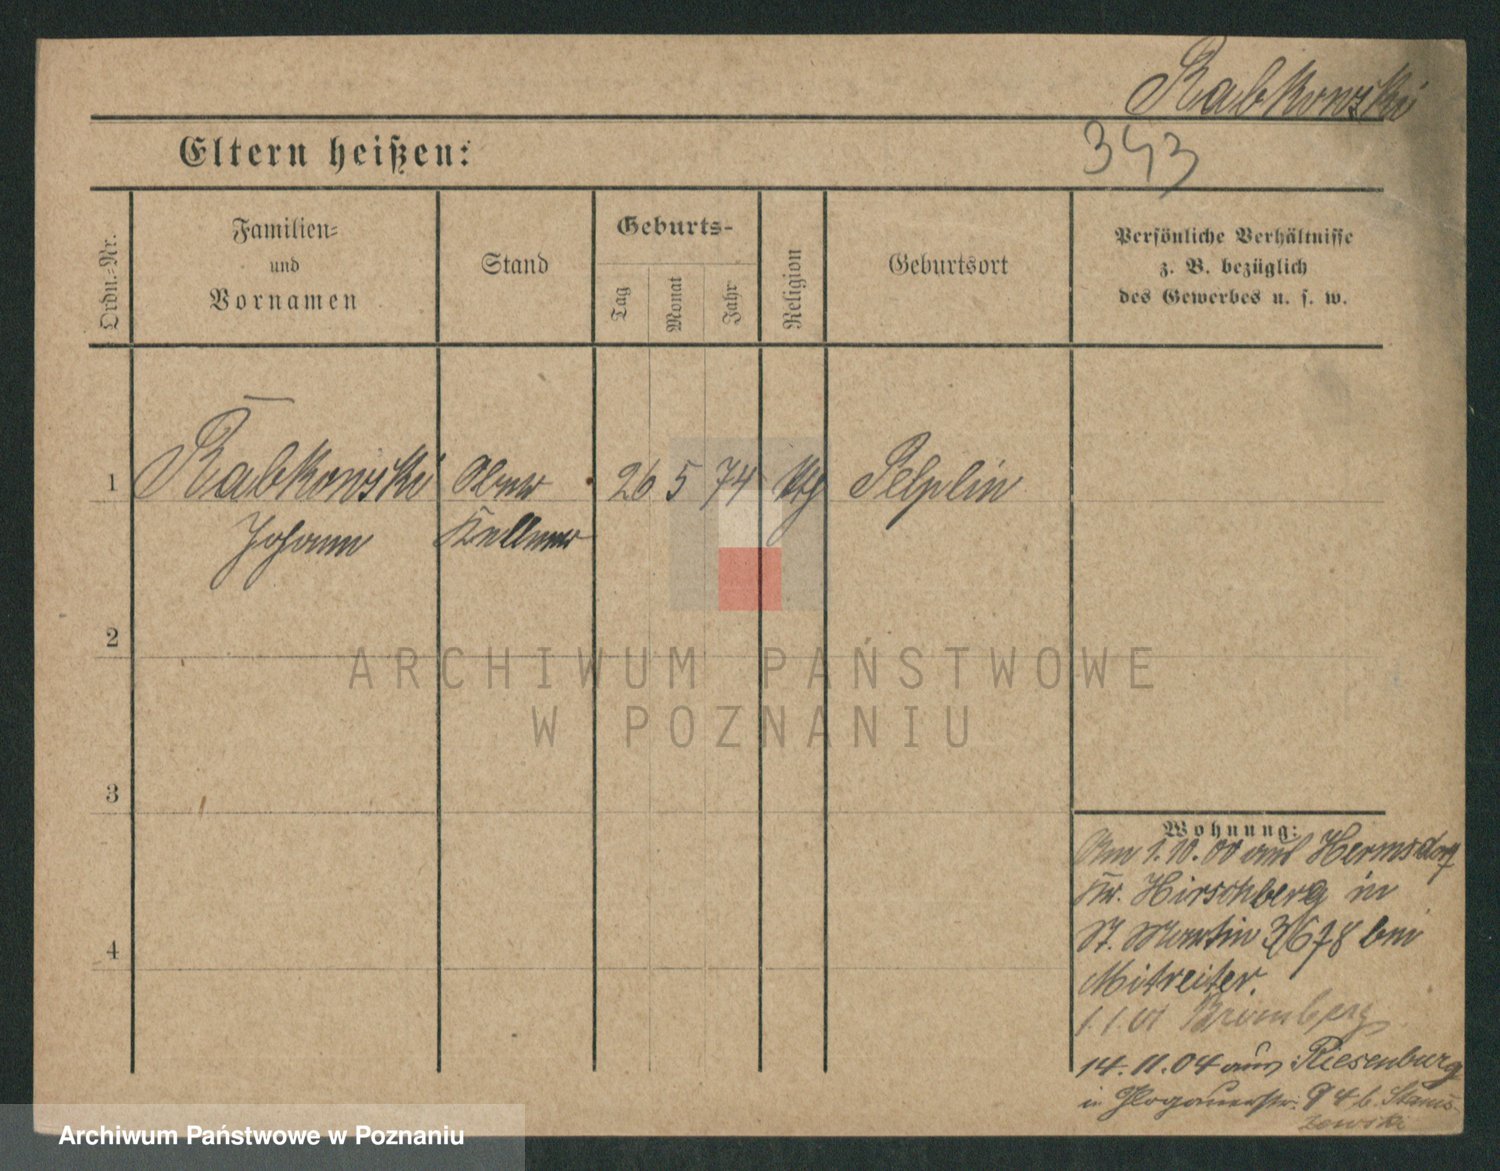 Rabkowski
Eltern heißen:
343
Ordn.-Nr.
Familien-
und
Vornamen
Stand
Geburts-
Tag
Monat
Jahr
Religion
Geburtsort
Persönliche Verhältnisse
z. B. bezüglich
des Gewerbes u. s. w.
1
Rabkowski
Johann
Ober
Kellner
26 5 74
Pelplin
2
3
4
Wohnung:
Am 1.10.00 aus Hermsdorf
Kr. Hirschberg in
St. Martin 3/678 bei
Mitreiter.
1.1.01 Bromberg
14.11.04 aus Riesenburg
in Glogauerstr. 94 b. Stanis
zewski
ARCHIWUM PAŃSTWOWE
W POZNANIU
Archiwum Państwowe w Poznaniu